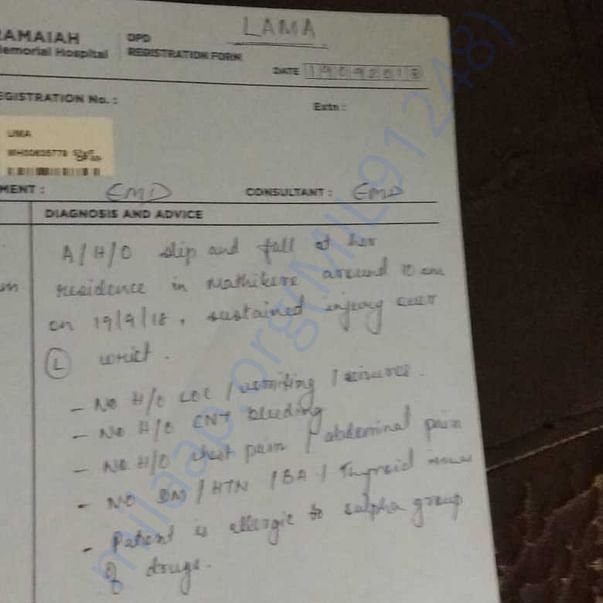 LAMA
RAMAIAH
Memorial Hospital
OPD
REGISTRATION FORM
DATE 19092018
REGISTRATION No. :
Extn :
UMA
MENT : EMD
CONSULTANT : EMD
DIAGNOSIS AND ADVICE
A/H/O slip and fall at her
residence in Mathikere around 10 am
on 19/9/18, sustained injury over
(L) wrist.
- No H/O LOC / vomiting / seizures.
- No H/O ENT bleeding
- No H/O chest pain / abdominal pain
- No DM / HTN / BA / Thyroid issues
- Patient is allergic to sulpha group
of drugs.
milaap.org(MIL91248)